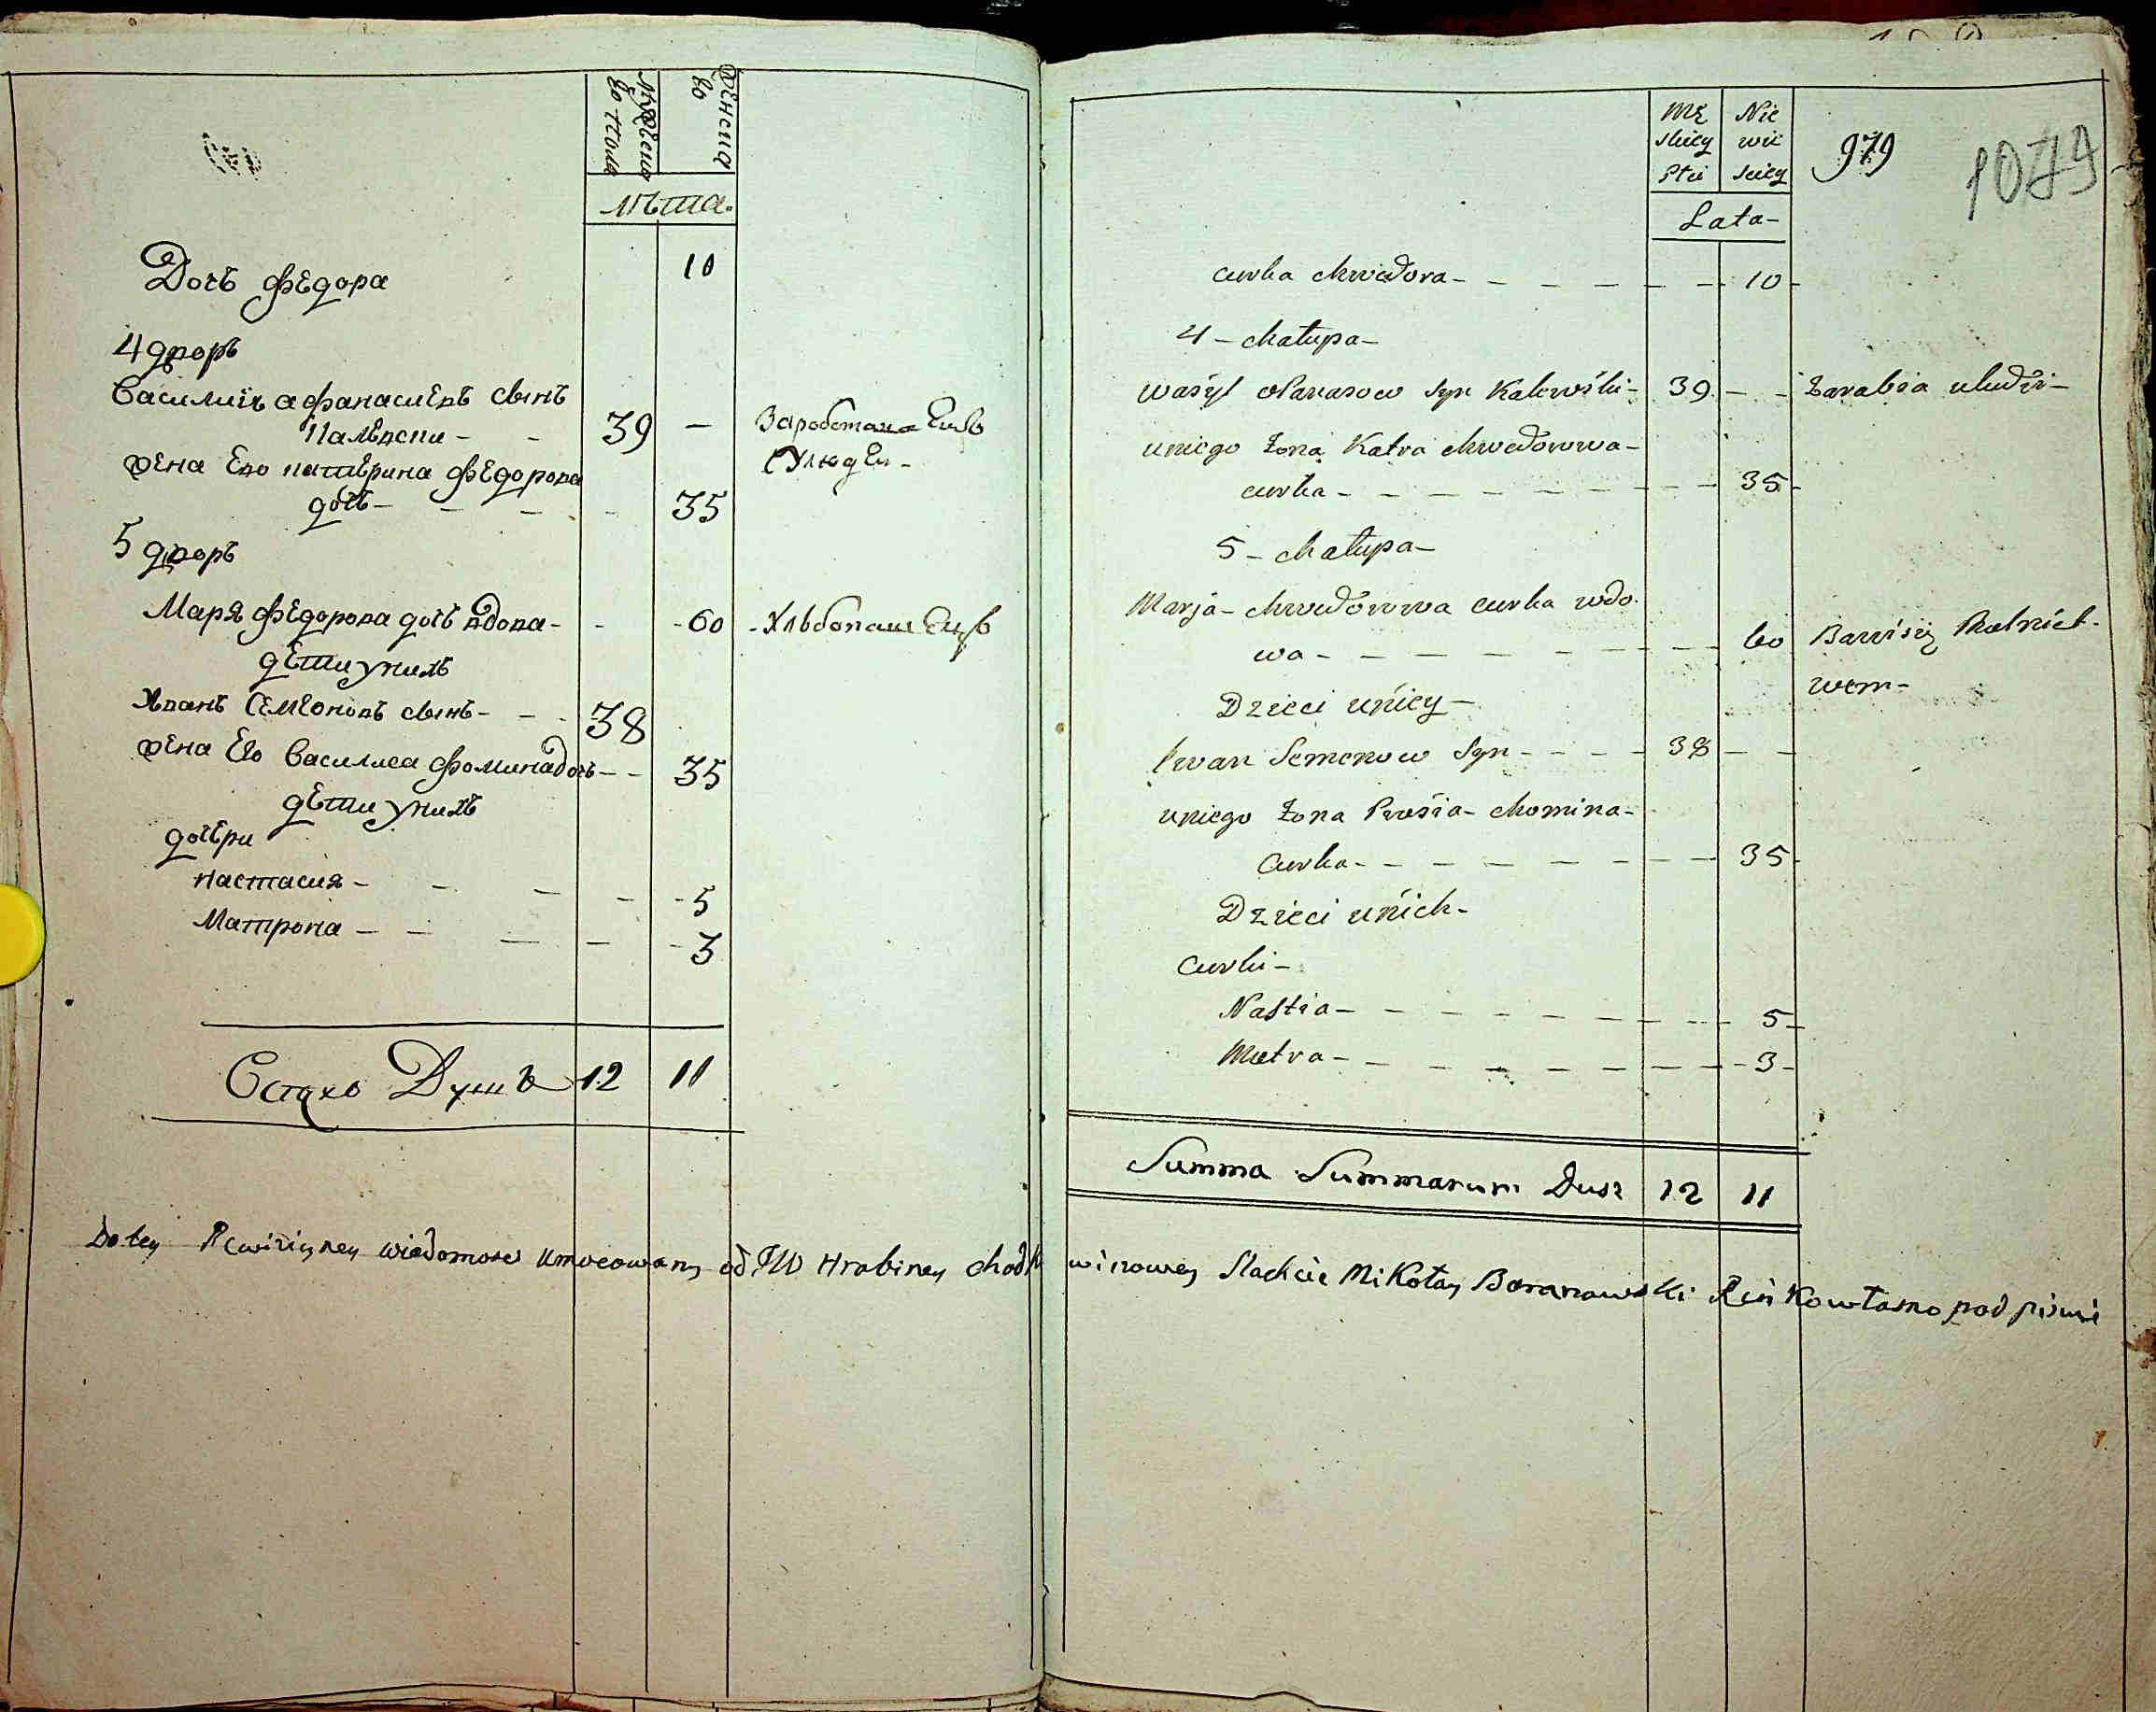 Мужеска
го пола
Женска
го
лѣта.
Дочь Федора 10
4 дворъ
Василий Афанасиевъ сынъ
Калевски - - 39 - Заработаетъ
жена Его катерина Федорова
дочь - - - - 35
у людей -
5 дворъ
Маря Федорова дочь вдова - - 60 - Хлѣбопашецъ
дети у нихъ
Иванъ Семеоновъ сынъ - - - 38
жена Его Василиса фомина дочь - - 35
дети у нихъ
дочери
Настасия - - - - 5
Матрона - - - - 3
Душъ 12 11
Mę
skiey
Płci
Nie
wie
sciey
979
1079
Lata -
curka Chwedora - - - - - - - 10 -
4 - Chałupa -
Wasyl Panasow Syn Kalewski - 39 - - Zarabia u ludzi -
u niego Żona Katra Chwedorowa -
curka - - - - - - - - - 35 -
5 - Chałupa -
Marja - Chwedorowa curka wdo
wa - - - - - - - - - 60 Bawi się Rolnict
wem -
Dzieci u niey -
Iwan Semenow Syn - - - - 38 - -
u niego Żona Prosia - Chomina -
Curka - - - - - - - - 35 -
Dzieci u nich -
Curki -
Nastia - - - - - - - - - 5 -
Motra - - - - - - - - - 3 -
Summa Summarum Dusz 12 11
Do tey Rewizyiney wiadomosci umocowany od JW Hrabiney Chodkiewiczowey Slachcic Mikołay Baranowski Ręką własno podpisuie